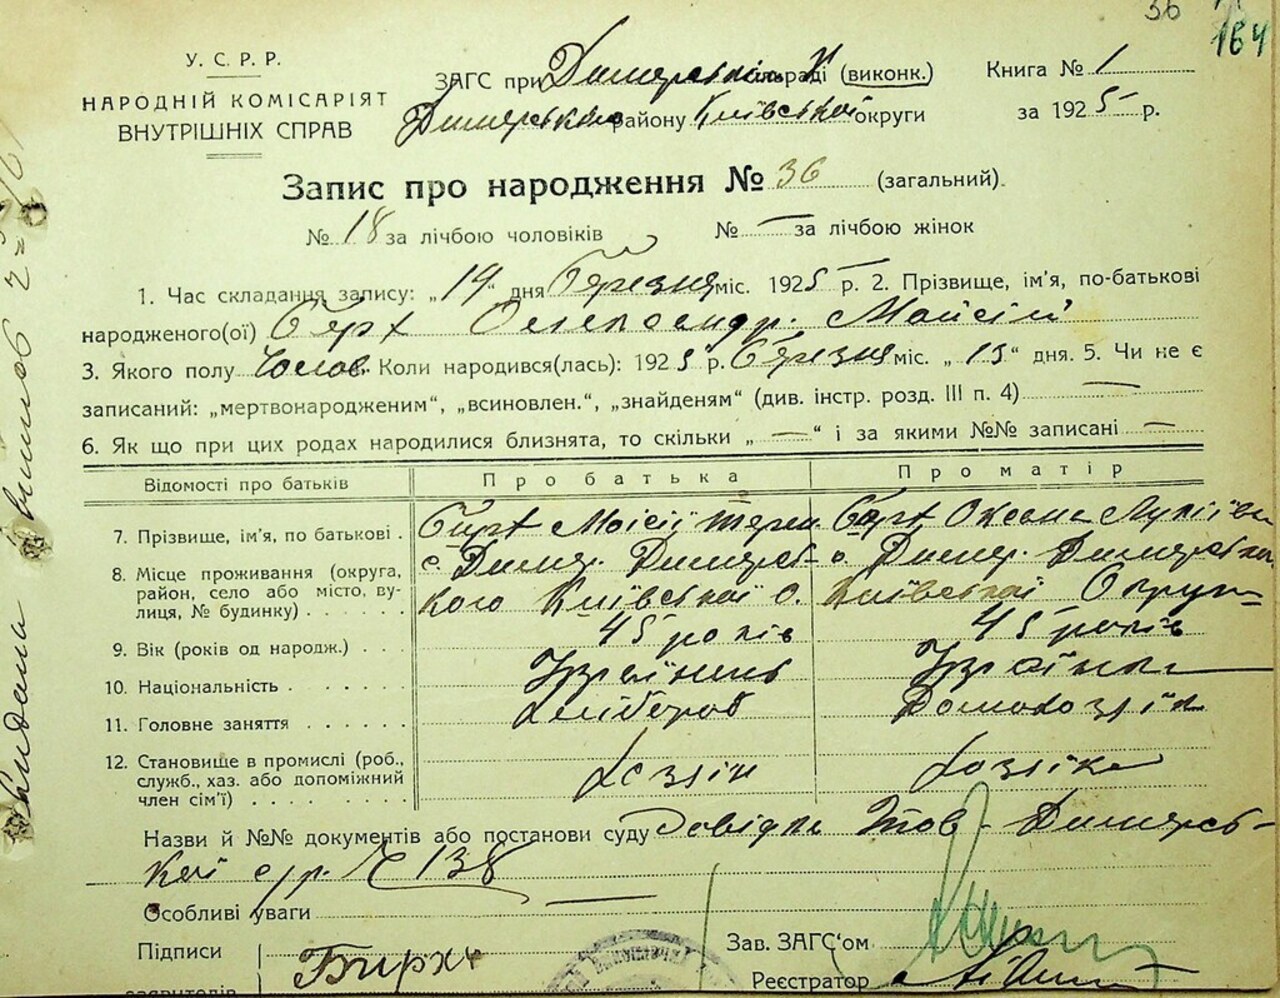 36
164
У. С. Р. Р.
НАРОДНІЙ КОМІСАРІЯТ
ВНУТРІШНІХ СПРАВ
ЗАГС при Димерськім сільраді (виконк.)
Димерського району Київської округи
Книга № 1
за 1925 р.
Запис про народження № 36 (загальний).
№ 18 за лічбою чоловіків № — за лічбою жінок
1. Час складання запису: „19“ дня Березня міс. 1925 р. 2. Прізвище, ім'я, по-батькові
народженого(ої) Олександр. Мойсій
3. Якого полу Чолов. Коли народився(лась): 1925 р. Березня міс. „15“ дня. 5. Чи не є
записаний: „мертвонародженим“, „всиновлен.“, „знайденям“ (див. інстр. розд. III п. 4) —
6. Як що при цих родах народилися близнята, то скільки „—“ і за якими №№ записані —
Відомості про батьків Про батька Про матір
7. Прізвище, ім'я, по батькові . Моісій Оксана
8. Місце проживання (округа, район, село або місто, вулиця, № будинку) с. Димер. Димерсь-
кого Київської о. с. Димер. Димерськ
Київської Округи
9. Вік (років од народж.) . . . 45 років 45 років
10. Національність . . . . . . Українець Українка
11. Головне заняття . . . . . . хлібороб Домохозяйк
12. Становище в промислі (роб., служб., хаз. або допоміжний член сім'ї) . . . . . . хозяїн хозяїка
Назви й №№ документів або постанови суду Довідка Димерсь-
кої с/р. № 138
Особливі уваги —
Підписи
заявителів
Зав. ЗАГС'ом
Реєстратор